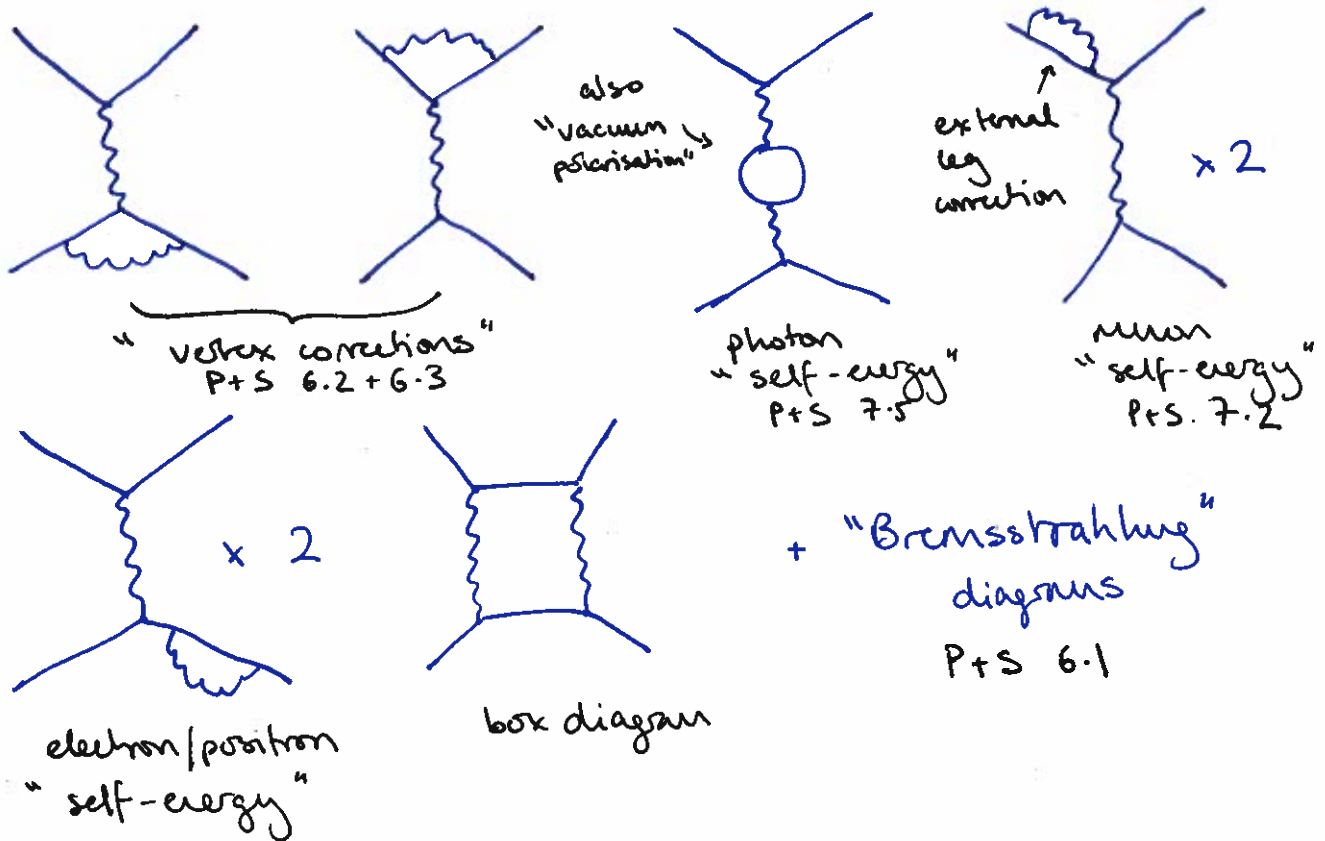 also
"vacuum
polarisation"
external
leg
correction
x 2
"vertex corrections"
P+S 6.2 + 6.3
photon
"self-energy"
P+S 7.5
muon
"self-energy"
P+S. 7.2
x 2
+ "Bremsstrahlung"
diagrams
P+S 6.1
electron/positron
"self-energy"
box diagram